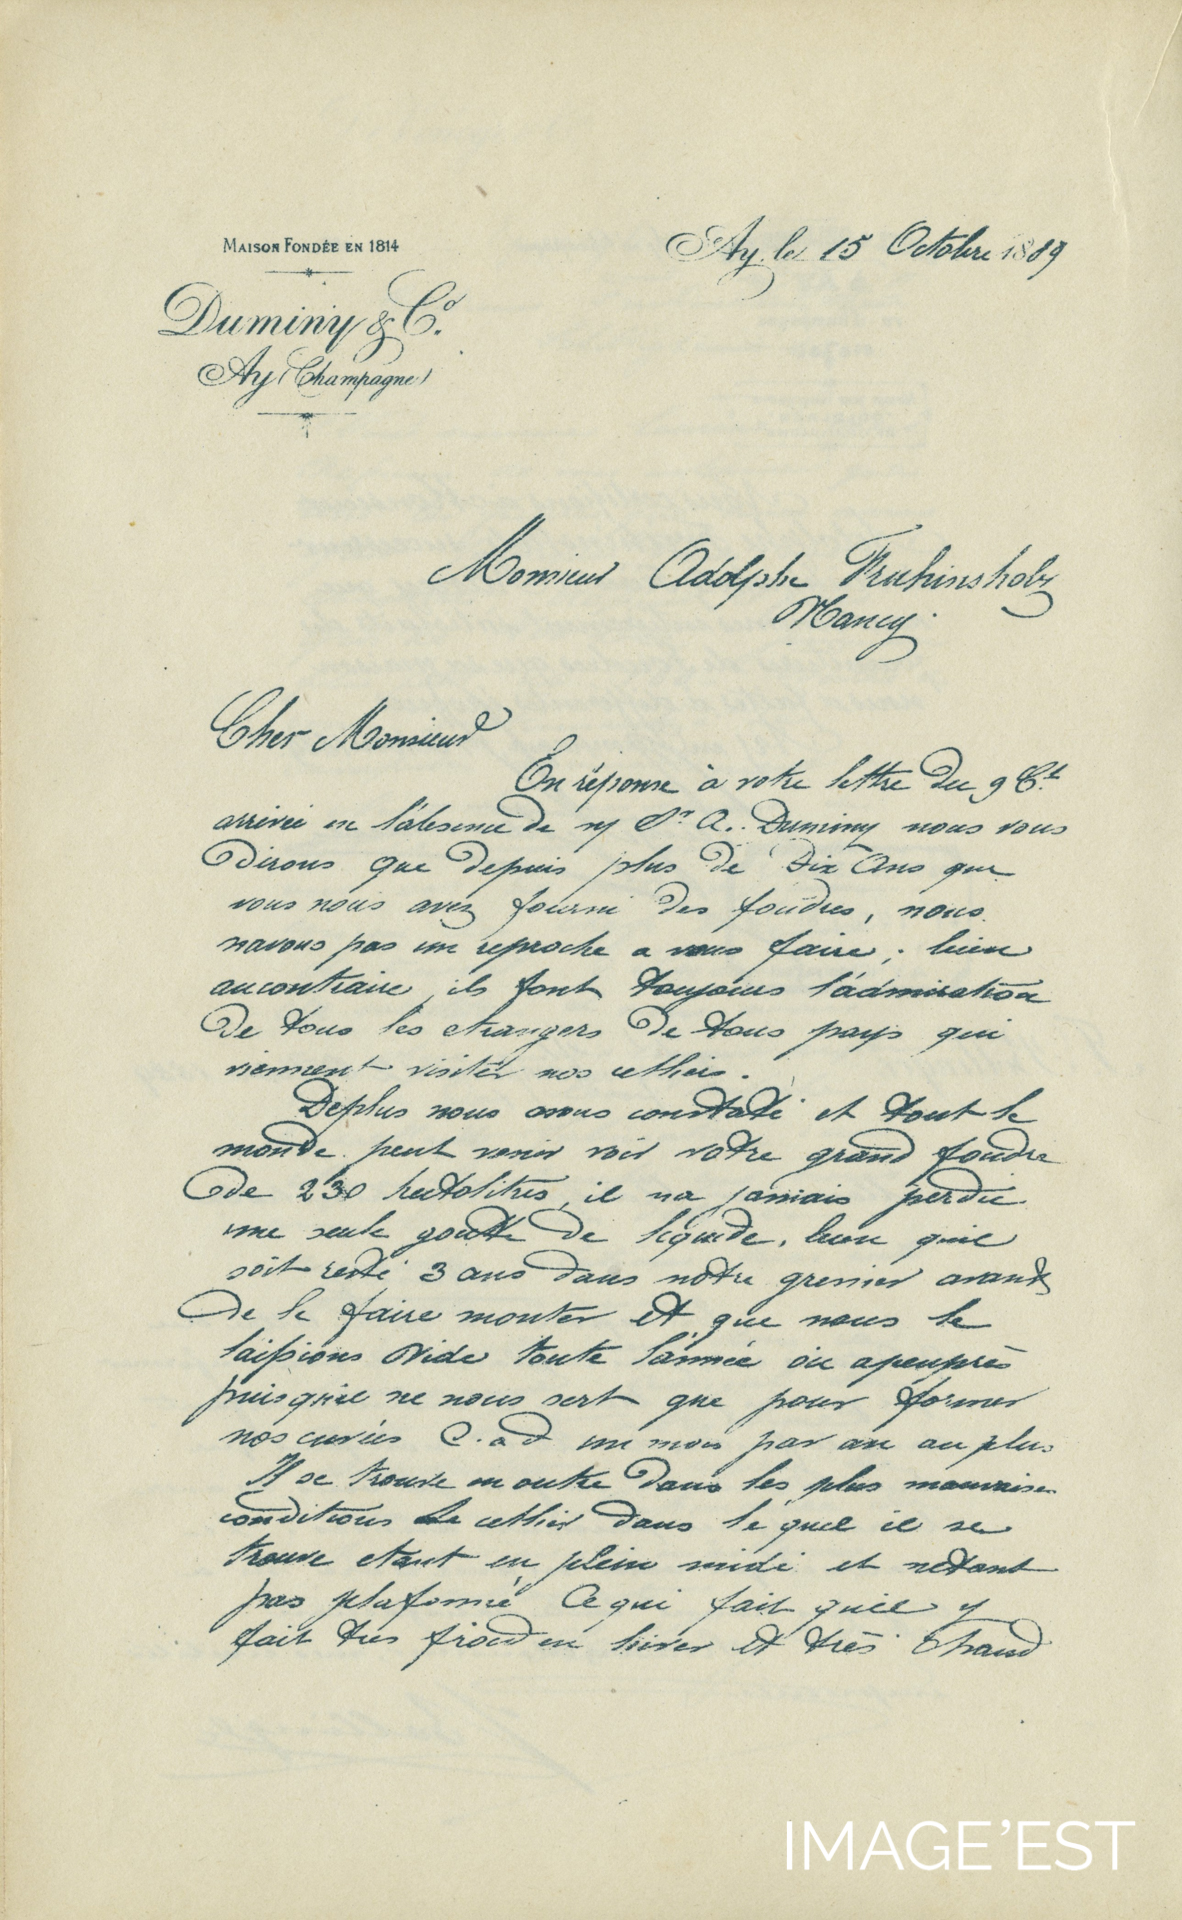 MAISON FONDÉE EN 1814
Duminy & Co.
Ay (Champagne)
Ay, le 15 Octobre 1889
Monsieur Adolphe Fruhinsholz
Nancy.
Cher Monsieur
En réponse à votre lettre du 9 Ct.
arrivée en l'absence de n/ Sr A. Duminy nous vous
dirons que depuis plus de Dix Ans que
vous nous avez fourni des foudres, nous
navons pas un reproche a vous faire; bien
aucontraire, ils font toujours l'admiration
de tous les etrangers de tous pays qui
viennent visiter nos celliers.
Deplus nous avons constaté et tout le
monde peut venir voir votre grand foudre
de 230 hectolitres, il na jamais perdu
une seule goutte de liquide, bien quil
soit resté 3 ans dans notre grenier avant
de le faire monter et que nous le
laissions vide toute l'année ou apeuprès
puisquil ne nous sert que pour former
nos cuvées C.a d un mois par an au plus
Il se trouve en outre dans les plus mauvaises
conditions le cellier dans le quel il se
trouve etant en plein midi et netant
pas plafonné Ce qui fait quil y
fait tres froid en hiver et très chaud
IMAGE'EST